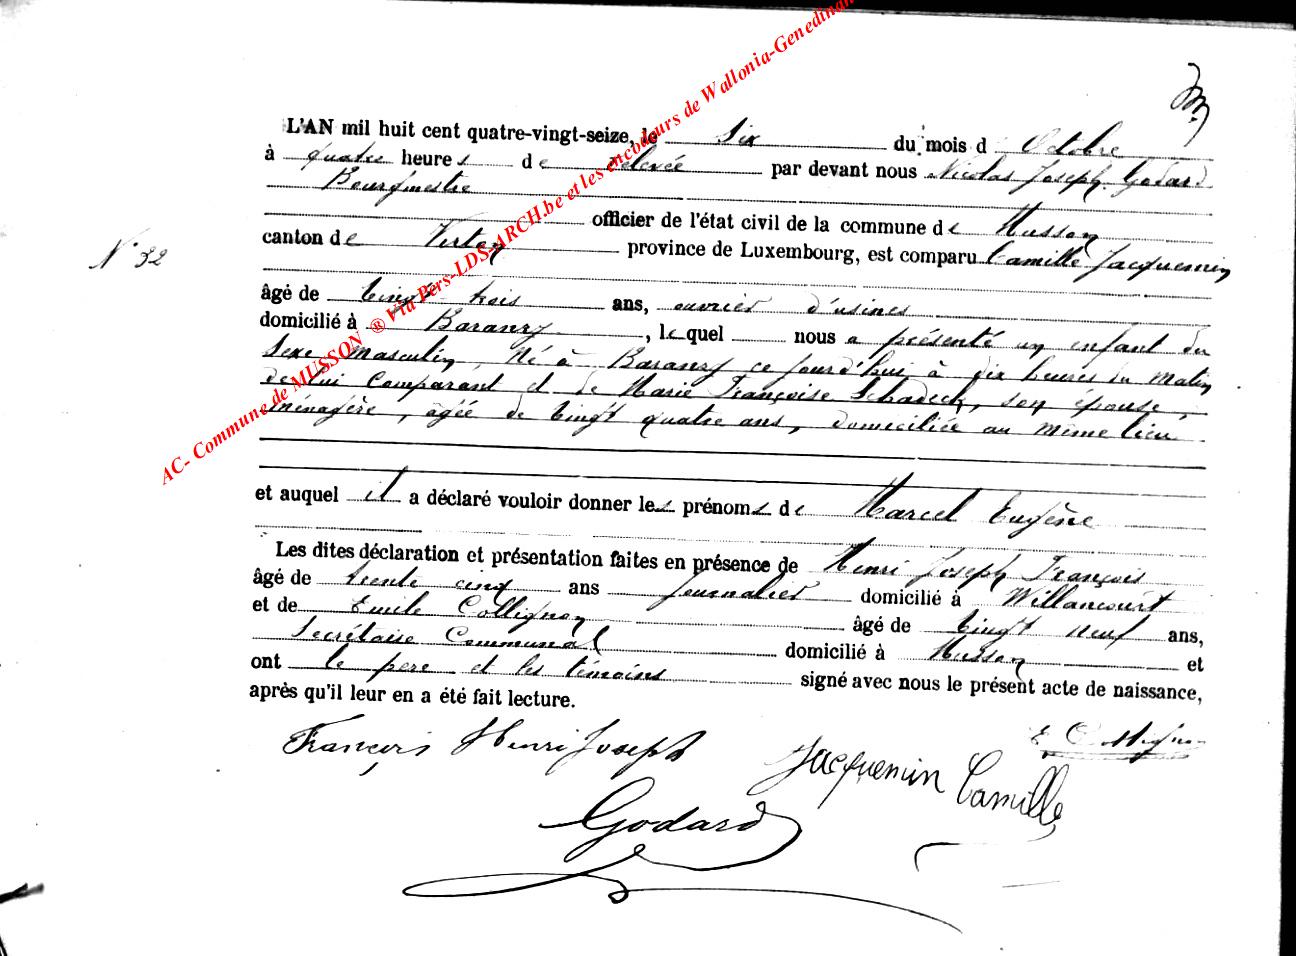 L'AN mil huit cent quatre-vingt-seize, le six du mois d'Octobre
à quatre heures de relevée par devant nous Nicolas Joseph Godard
Bourgmestre
officier de l'état civil de la commune de Musson
N° 32
canton de Virton province de Luxembourg, est comparu Camille Jacquemin
âgé de vingt trois ans, ouvrier d'usines
domicilié à Baranzy, lequel nous a présenté un enfant du
sexe masculin, Né à Baranzy ce jourd'hui à dix heures du matin
de lui comparant et de Marie Françoise Schadeck, son épouse,
ménagère, âgée de vingt quatre ans, domiciliée au même lieu
et auquel il a déclaré vouloir donner les prénoms de Marcel Eugène
Les dites déclaration et présentation faites en présence de Henri Joseph François
âgé de trente cinq ans Journalier domicilié à Willancourt
et de Emile Collignon âgé de vingt neuf ans,
Secrétaire Communal domicilié à Musson et
ont le père et les témoins signé avec nous le présent acte de naissance,
après qu'il leur en a été fait lecture.
François Henri Joseph Jacquemin Camille E Collignon
Godard
AC- Commune de MUSSON ® Via Pers-LDS-ARCH.be et les encodeurs de Wallonia-Genedinan